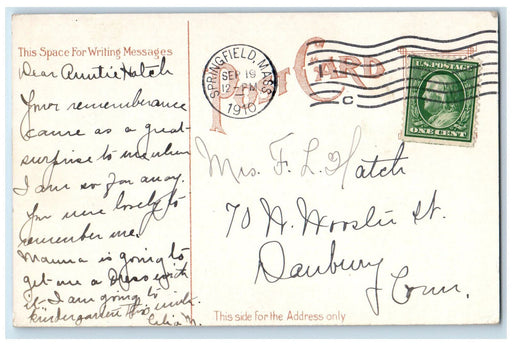 This Space For Writing Messages
POST CARD
SPRINGFIELD, MASS.
SEP 19
12-PM
1910
C
U.S. POSTAGE
ONE CENT
Dear Auntie Hatch
Your remembrance
came as a great
surprise to me when
I am so far away.
You were lovely to
remember me.
Mamma is going to
get me a Dress with
it. I am going to
kindergarten this
Celia M.
Mrs. F. L. Hatch
70 N. Wooster St.
Danbury
Conn.
This side for the Address only